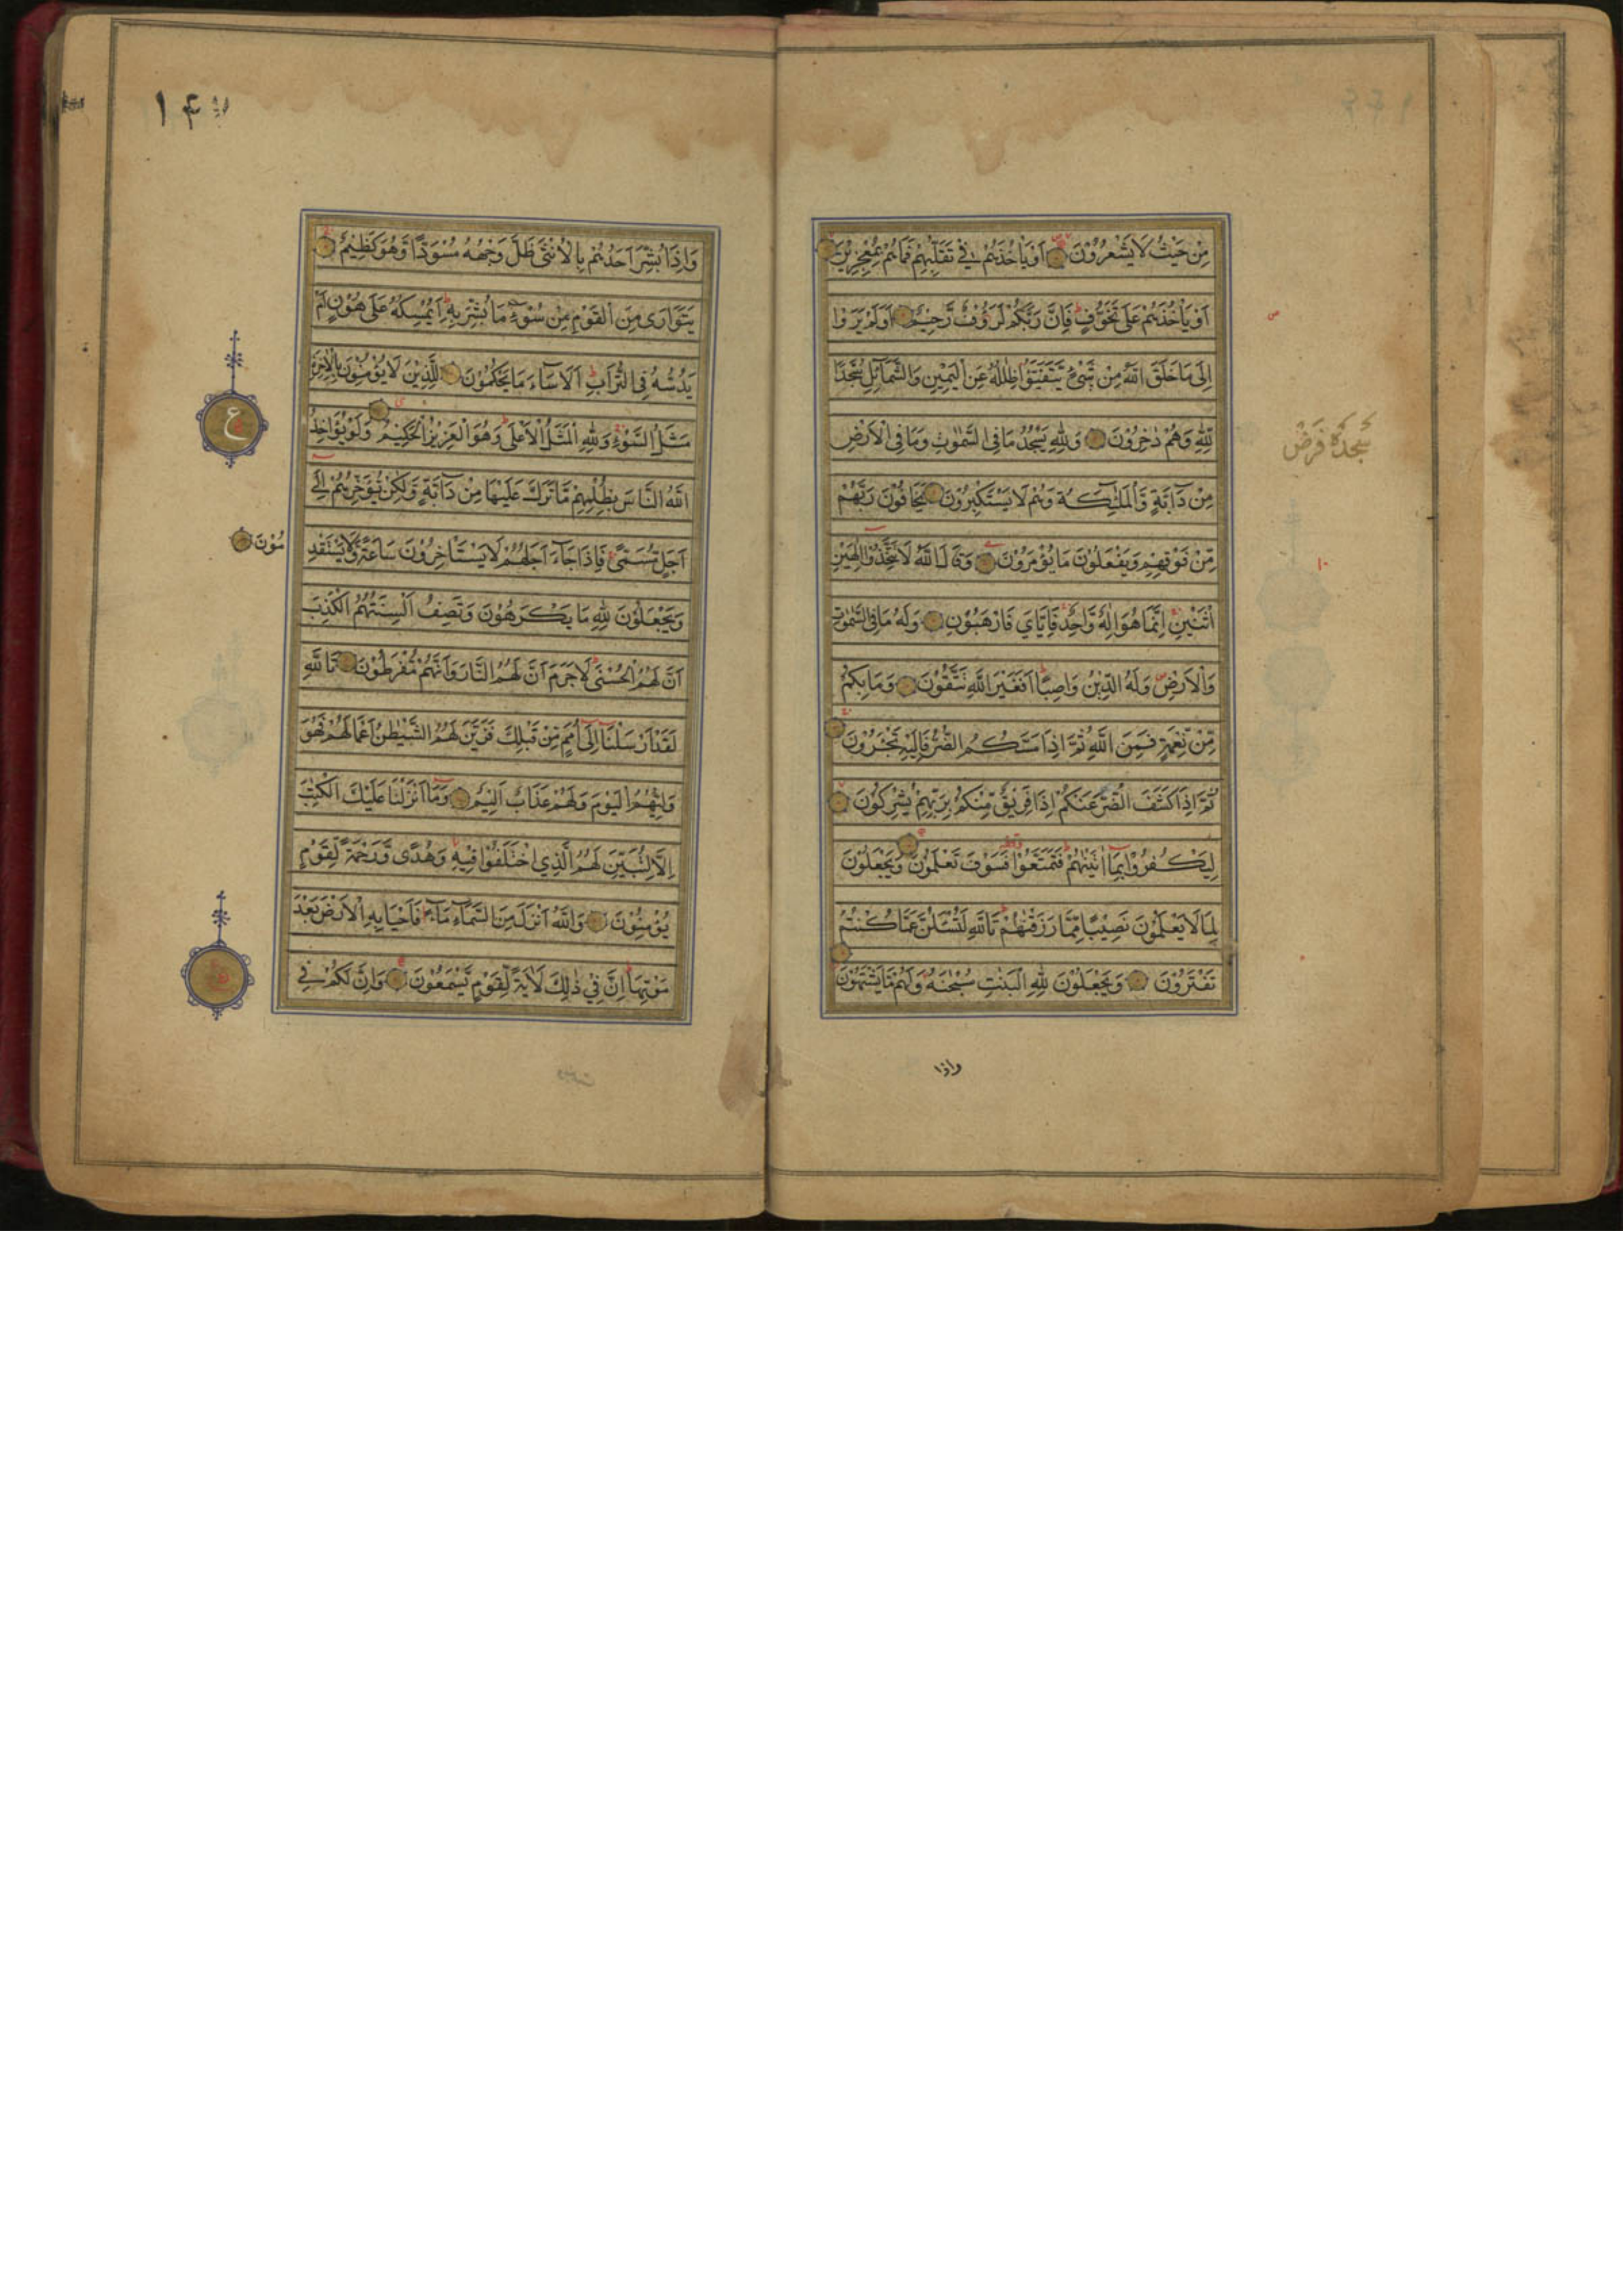 مِنْ حَيْثُ لَا يَشْعُرُوْنَ اَوْ يَاْخُذَهُمْ فِيْ تَقَلُّبِهِمْ فَمَا هُمْ بِمُعْجِزِيْنَ
اَوْ يَاْخُذَهُمْ عَلٰى تَخَوُّفٍ فَاِنَّ رَبَّكُمْ لَرَؤُفٌ رَّحِيْمٌ اَوَلَمْ يَرَوْا
اِلٰى مَا خَلَقَ اللّٰهُ مِنْ شَيْءٍ يَّتَفَيَّؤُا ظِلٰلُهُ عَنِ الْيَمِيْنِ وَالشَّمَآئِلِ سُجَّدًا
لِّلّٰهِ وَهُمْ دٰخِرُوْنَ وَلِلّٰهِ يَسْجُدُ مَا فِي السَّمٰوٰتِ وَمَا فِي الْاَرْضِ
سجدۀ فرض
مِنْ دَآبَّةٍ وَّالْمَلٰٓئِكَةُ وَهُمْ لَا يَسْتَكْبِرُوْنَ يَخَافُوْنَ رَبَّهُمْ
مِّنْ فَوْقِهِمْ وَيَفْعَلُوْنَ مَا يُؤْمَرُوْنَ وَقَالَ اللّٰهُ لَا تَتَّخِذُوْا اِلٰهَيْنِ
اثْنَيْنِ اِنَّمَا هُوَ اِلٰهٌ وَّاحِدٌ فَاِيَّايَ فَارْهَبُوْنِ وَلَهُ مَا فِي السَّمٰوٰتِ
وَالْاَرْضِ وَلَهُ الدِّيْنُ وَاصِبًا اَفَغَيْرَ اللّٰهِ تَتَّقُوْنَ وَمَا بِكُمْ
مِّنْ نِّعْمَةٍ فَمِنَ اللّٰهِ ثُمَّ اِذَا مَسَّكُمُ الضُّرُّ فَاِلَيْهِ تَجْـَٔرُوْنَ
ثُمَّ اِذَا كَشَفَ الضُّرَّ عَنْكُمْ اِذَا فَرِيْقٌ مِّنْكُمْ بِرَبِّهِمْ يُشْرِكُوْنَ
لِيَكْفُرُوْا بِمَا اٰتَيْنٰهُمْ فَتَمَتَّعُوْا فَسَوْفَ تَعْلَمُوْنَ وَيَجْعَلُوْنَ
لِمَا لَا يَعْلَمُوْنَ نَصِيْبًا مِّمَّا رَزَقْنٰهُمْ تَاللّٰهِ لَتُسْـَٔلُنَّ عَمَّا كُنْتُمْ
تَفْتَرُوْنَ وَيَجْعَلُوْنَ لِلّٰهِ الْبَنٰتِ سُبْحٰنَهُ وَلَهُمْ مَّا يَشْتَهُوْنَ
واذا
وَاِذَا بُشِّرَ اَحَدُهُمْ بِالْاُنْثٰى ظَلَّ وَجْهُهُ مُسْوَدًّا وَّهُوَ كَظِيْمٌ
يَتَوَارٰى مِنَ الْقَوْمِ مِنْ سُوْٓءِ مَا بُشِّرَ بِهِ اَيُمْسِكُهُ عَلٰى هُوْنٍ اَمْ
يَدُسُّهُ فِي التُّرَابِ اَلَا سَآءَ مَا يَحْكُمُوْنَ لِلَّذِيْنَ لَا يُؤْمِنُوْنَ بِالْاٰخِرَةِ
مَثَلُ السَّوْءِ وَلِلّٰهِ الْمَثَلُ الْاَعْلٰى وَهُوَ الْعَزِيْزُ الْحَكِيْمُ وَلَوْ يُؤَاخِذُ
ع
اللّٰهُ النَّاسَ بِظُلْمِهِمْ مَّا تَرَكَ عَلَيْهَا مِنْ دَآبَّةٍ وَّلٰكِنْ يُّؤَخِّرُهُمْ اِلٰٓى
اَجَلٍ مُّسَمًّى فَاِذَا جَآءَ اَجَلُهُمْ لَا يَسْتَاْخِرُوْنَ سَاعَةً وَّلَا يَسْتَقْدِ
مُوْنَ
وَيَجْعَلُوْنَ لِلّٰهِ مَا يَكْرَهُوْنَ وَتَصِفُ اَلْسِنَتُهُمُ الْكَذِبَ
اَنَّ لَهُمُ الْحُسْنٰى لَا جَرَمَ اَنَّ لَهُمُ النَّارَ وَاَنَّهُمْ مُّفْرَطُوْنَ تَاللّٰهِ
لَقَدْ اَرْسَلْنَا اِلٰٓى اُمَمٍ مِّنْ قَبْلِكَ فَزَيَّنَ لَهُمُ الشَّيْطٰنُ اَعْمَالَهُمْ فَهُوَ
وَلِيُّهُمُ الْيَوْمَ وَلَهُمْ عَذَابٌ اَلِيْمٌ وَمَا اَنْزَلْنَا عَلَيْكَ الْكِتٰبَ
اِلَّا لِتُبَيِّنَ لَهُمُ الَّذِي اخْتَلَفُوْا فِيْهِ وَهُدًى وَّرَحْمَةً لِّقَوْمٍ
يُّؤْمِنُوْنَ وَاللّٰهُ اَنْزَلَ مِنَ السَّمَآءِ مَآءً فَاَحْيَا بِهِ الْاَرْضَ بَعْدَ
مَوْتِهَا اِنَّ فِيْ ذٰلِكَ لَاٰيَةً لِّقَوْمٍ يَّسْمَعُوْنَ وَاِنَّ لَكُمْ فِي